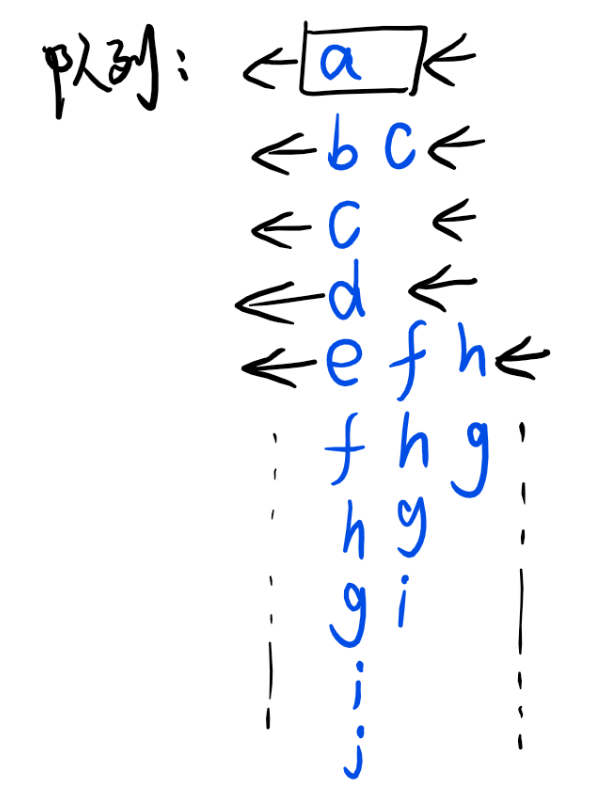 队列: a
b c
c
d
e f h
f h g
h g
g i
i
j